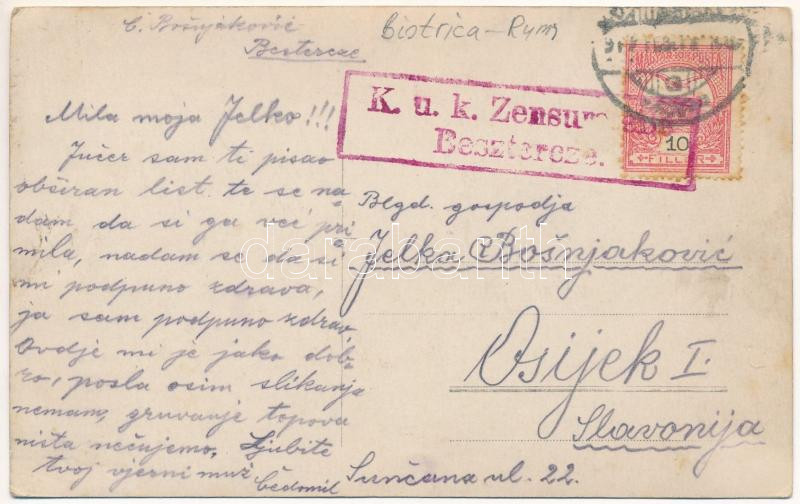 Č. Bošnjaković
Besztercze
Bistrica - Rum
K. u. k. Zensur
Besztercze.
10
FILLÉR
Mila moja Jelko!!!
Jučer sam ti pisao
obširan list te se na-
dam da si ga već pri-
mila, nadam se da si
mi podpuno zdrava,
ja sam podpuno zdrav.
Ovdje mi je jako dob-
ro, posla osim slikanja
nemam, gruvanje topova
ništa nečujemo. Ljubi te
tvoj vjerni muž
Čedomil
Blgd. gospodja
Jelka Bošnjaković
Osijek I.
Slavonija
Sunčana ul. 22.
darabanth